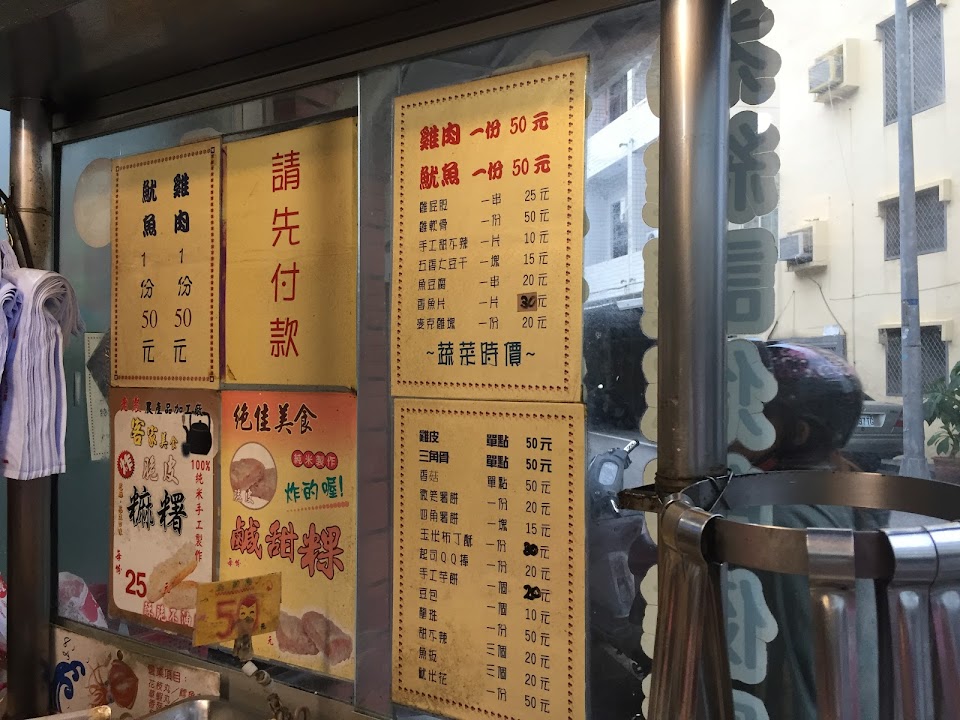 雞肉 1份 50元
魷魚 1份 50元
請先付款
雞肉 一份 50元
魷魚 一份 50元
雞屁股 一串 25元
雞軟骨 一份 50元
手工甜不辣 一片 10元
五香大豆干 一塊 15元
魚豆腐 一串 20元
香魚片 一片 30元
麥克雞塊 一份 20元
~蔬菜時價~
農產品加工廠
客家美食
炸
脆皮
麻糬
100%純米手工製作
每條 25元
絕佳美食
純米製作
炸的喔!
鹹甜粿
每條
50
元
雞皮 單點 50元
三角骨 單點 50元
香菇 單點 50元
微笑薯餅 一份 20元
四角薯餅 一塊 15元
玉米布丁酥 一份 20元
起司QQ棒 一份 20元
手工芋餅 一個 20元
豆包 一個 10元
龍珠 一份 50元
甜不辣 三個 20元
魚板 三個 20元
歐米花 一份 50元
營業項目: